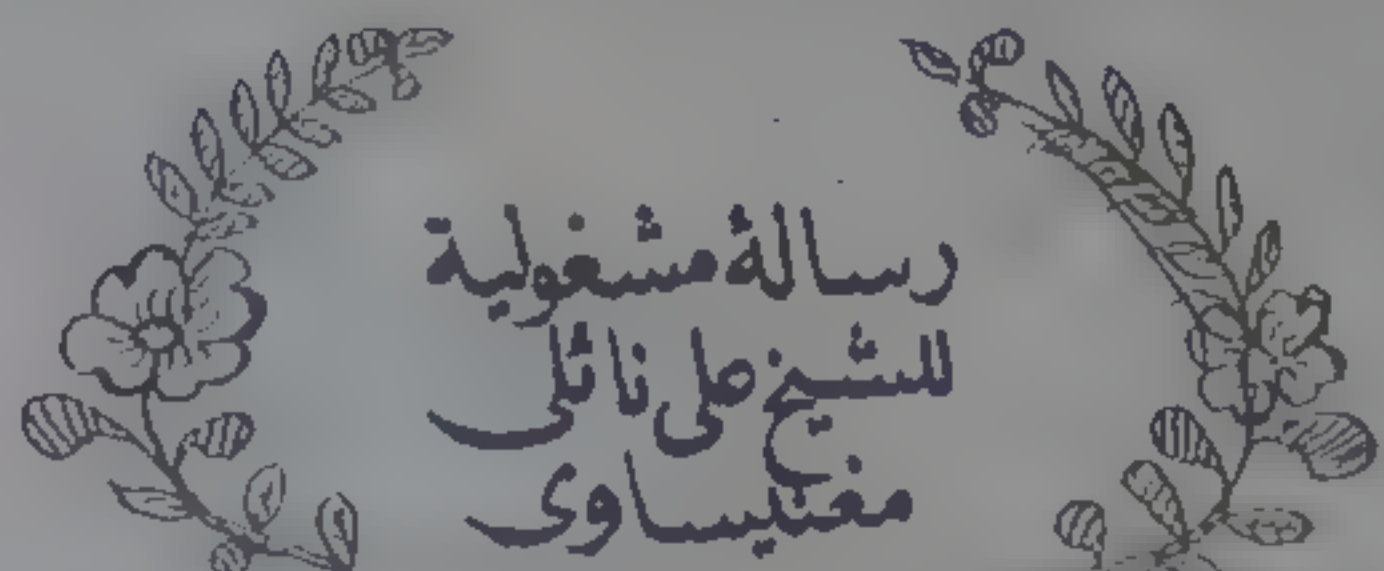 رسالهٔ مشغولية
للشيخ على نائلى
مغنيساوى